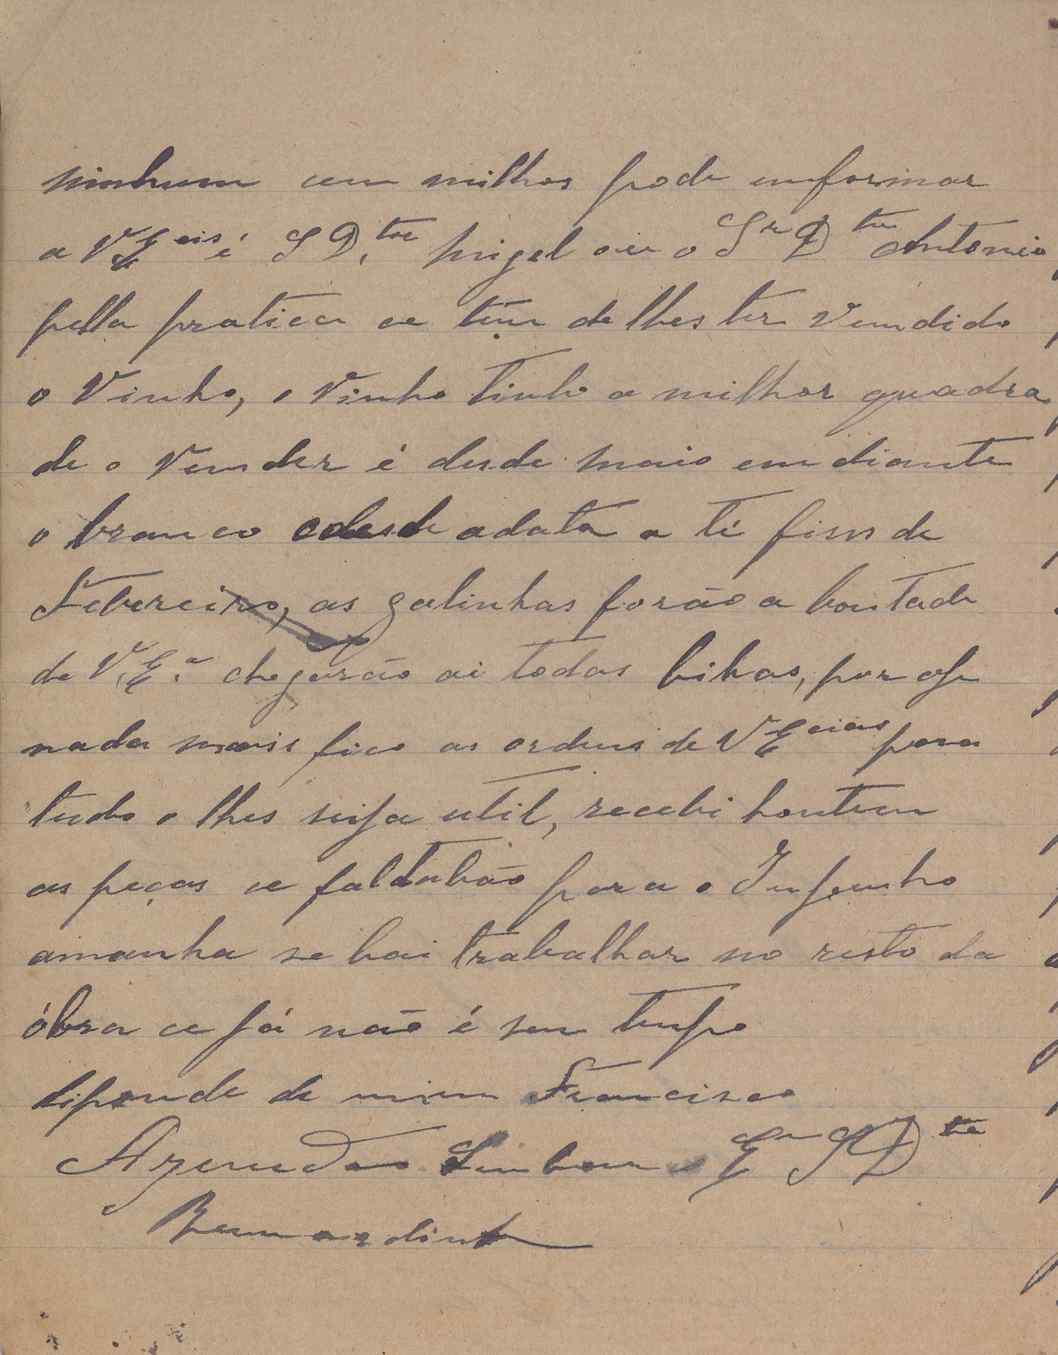 ninhum cem milhor pode emformar
a V Ex^cias é S D.^tor Migel ou o Sr D^tor Antonio
pella pratica ce têm de lhes ter vendido
o Vinho, o vinho tinto a milhor quadra
de o vender é desde Maio em diante
o branco desde adata a té fins de
Febereiro, as galinhas forão a bontade
de V. E.ª chegarão ai todas bibas, por oje
nada mais fico as ordens de V Ex^cias para
tudo o lhes seija util, recebi hontem
as peças ce faltabão para o Injenho
amanha se bai trabalhar no resto da
óbra ce já não é sem tenpo
disponde de mim Francisco
Azenedo Sr D^tor
Bernardino